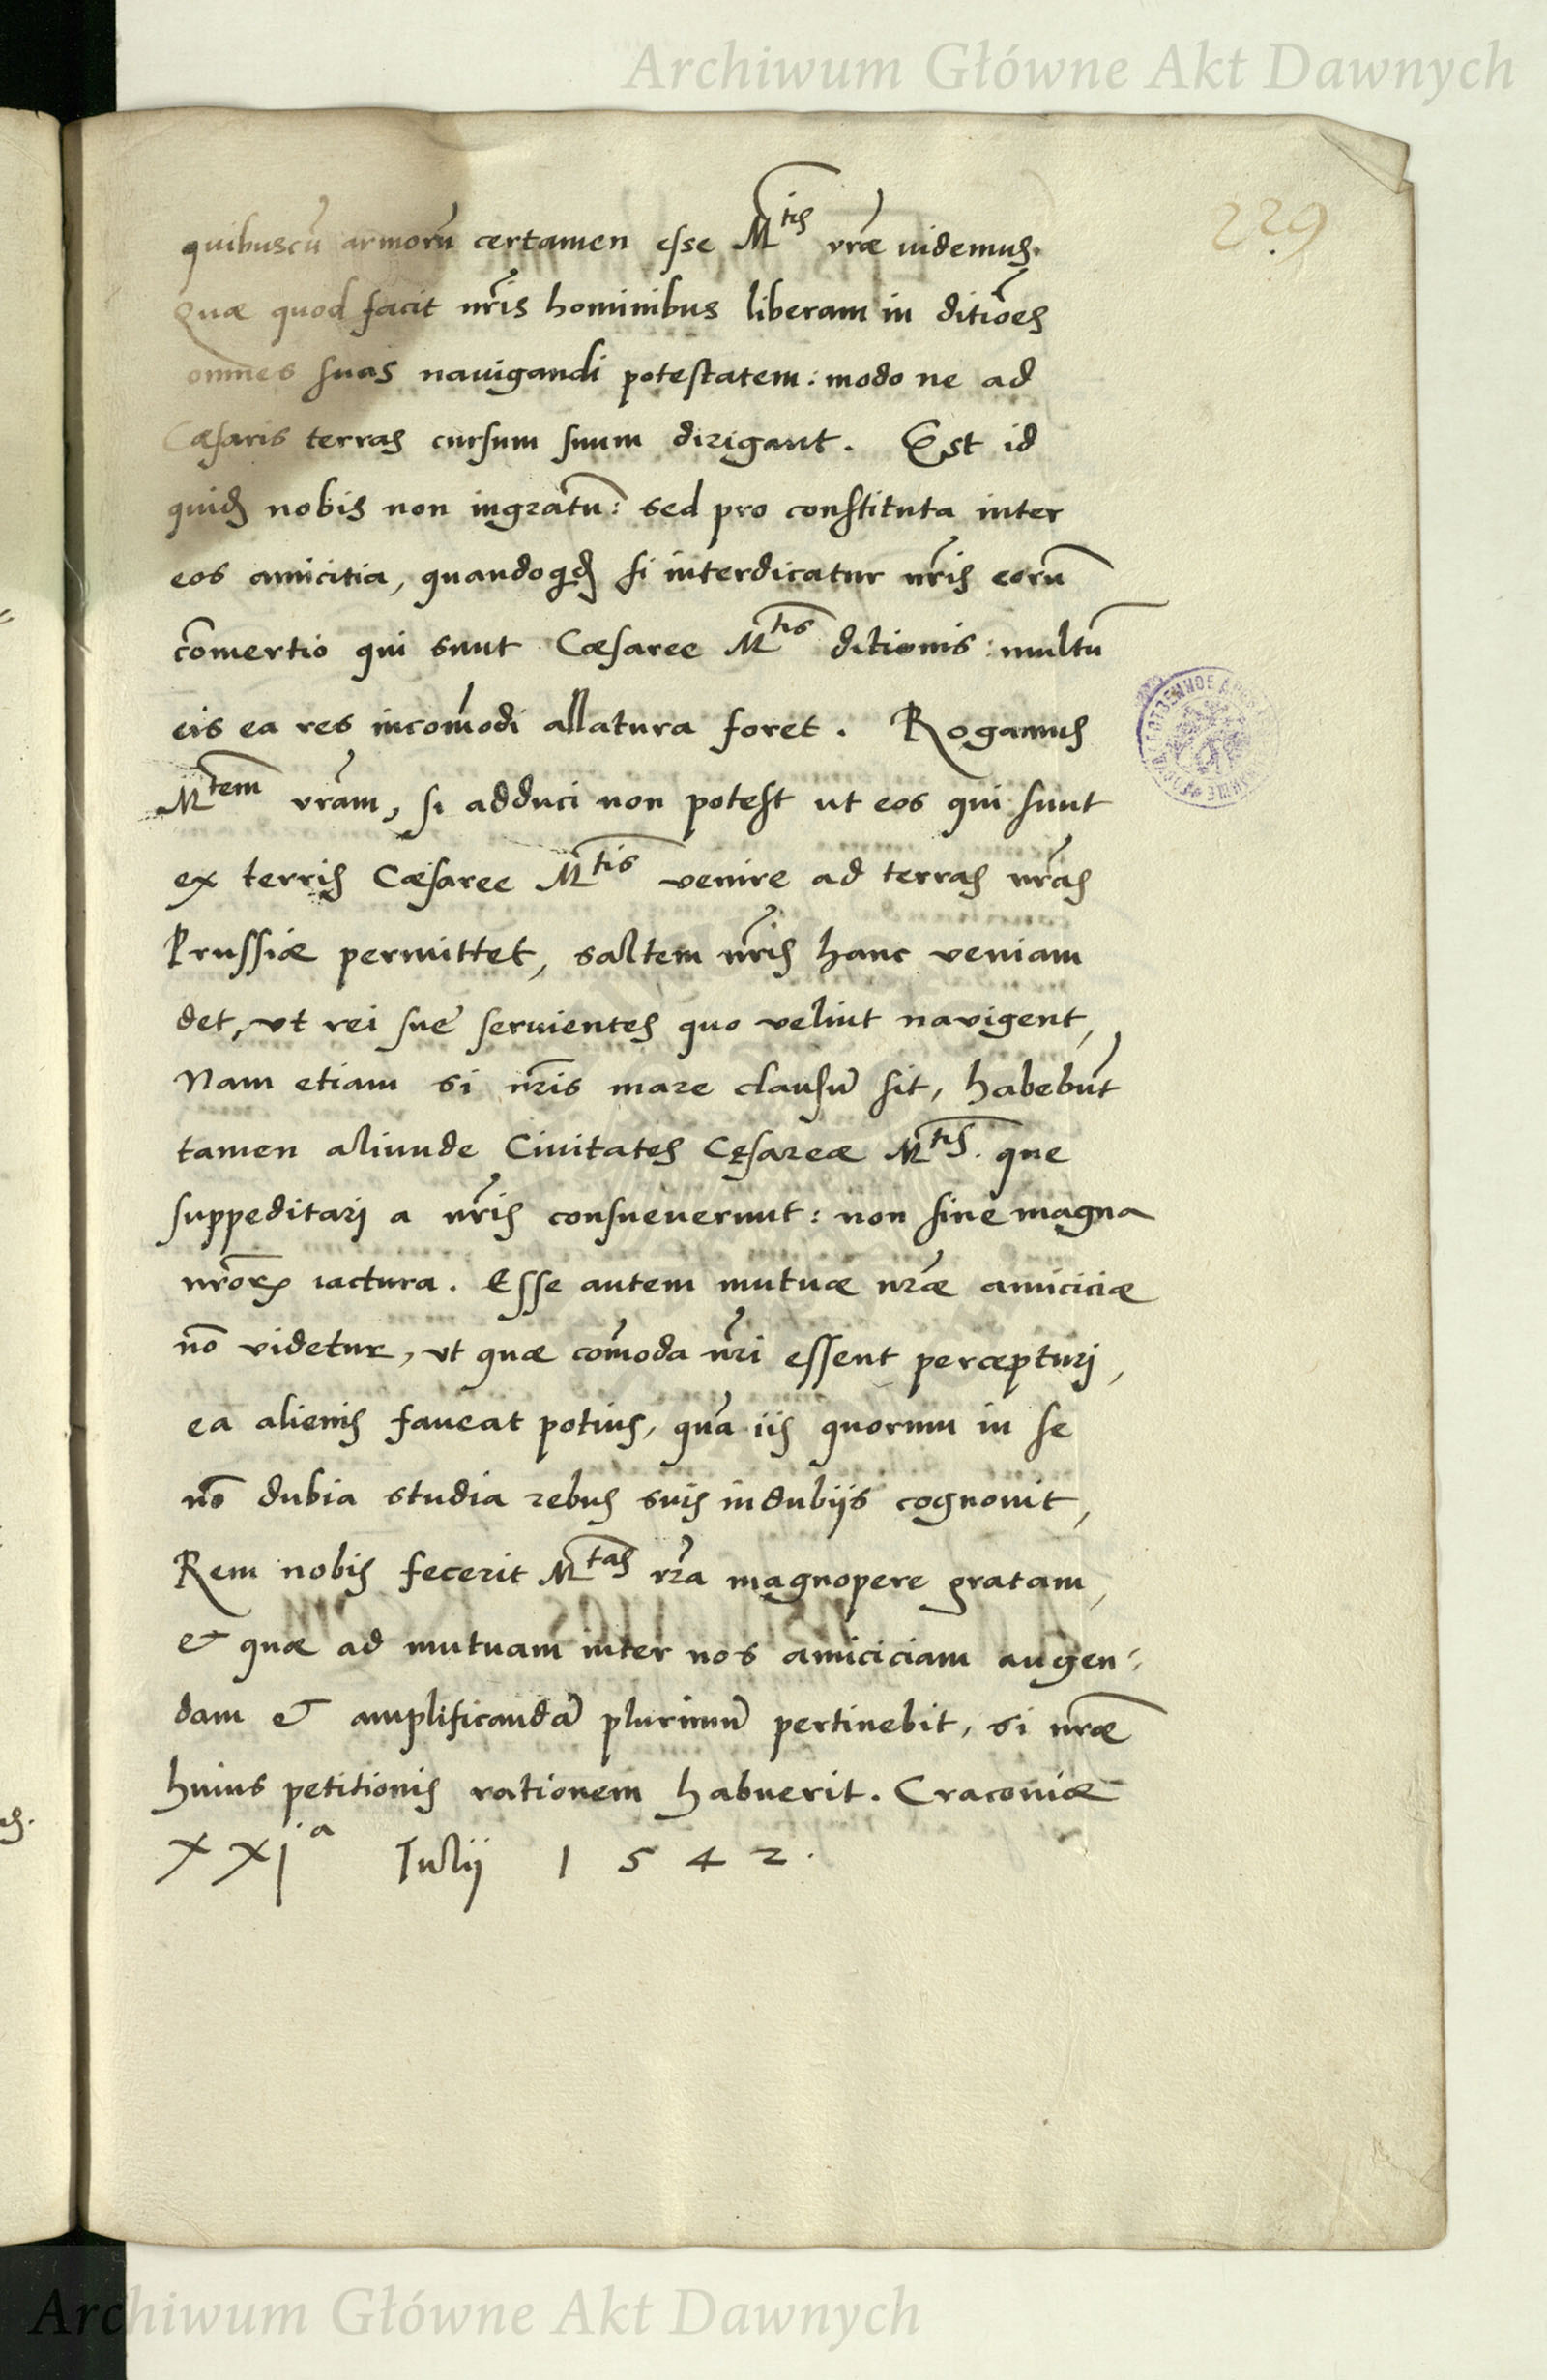 Archiwum Główne Akt Dawnych
229
quibuscũ armorũ certamen esse Mtis vrãe uidemus.
Quæ quod facit nr̃is hominibus liberam in ditiões
omnes suas nauigandi potestatem: modo ne ad
Cæsaris terras cursum suum dirigant. Est id
quidẽ nobis non ingratũ: sed pro constituta inter
eos amicitia, quandoqdẽ si interdicatur nr̃is eorũ
com̃ertio qui sunt Cæsaree Mtis ditionis: multũ
eis ea res incom̃odi allatura foret. Rogamus
Mtem vrãm, si adduci non potest ut eos qui sunt
ex terris Cæsaree Mtis venire ad terras nrãs
Prussiæ permittet, saltem nr̃is hanc veniam
det, vt rei sue seruientes quo velint navigent,
Nam etiam si nr̃is mare clausũ sit, habebũt
tamen aliunde Ciuitates Cęsareæ Mtis. que
suppeditari a nr̃is consueuerunt: non sine magna
nrõꝝ iactura. Esse autem mutuæ nrãe amiciciæ
nõ videtur, vt quæ com̃oda nr̃i essent percepturi,
ea alienis faueat potius, quã iis quorum in se
nõ dubia studia rebus suis in dubijs cognouit,
Rem nobis fecerit Mtas vrã magnopere gratam,
& quæ ad mutuam inter nos amiciciam augen-
dam & amplificandã plurimũ pertinebit, si nrãe
huius petitionis rationem habuerit. Cracouiæ
XXI a Iulij 1542.
Archiwum Główne Akt Dawnych